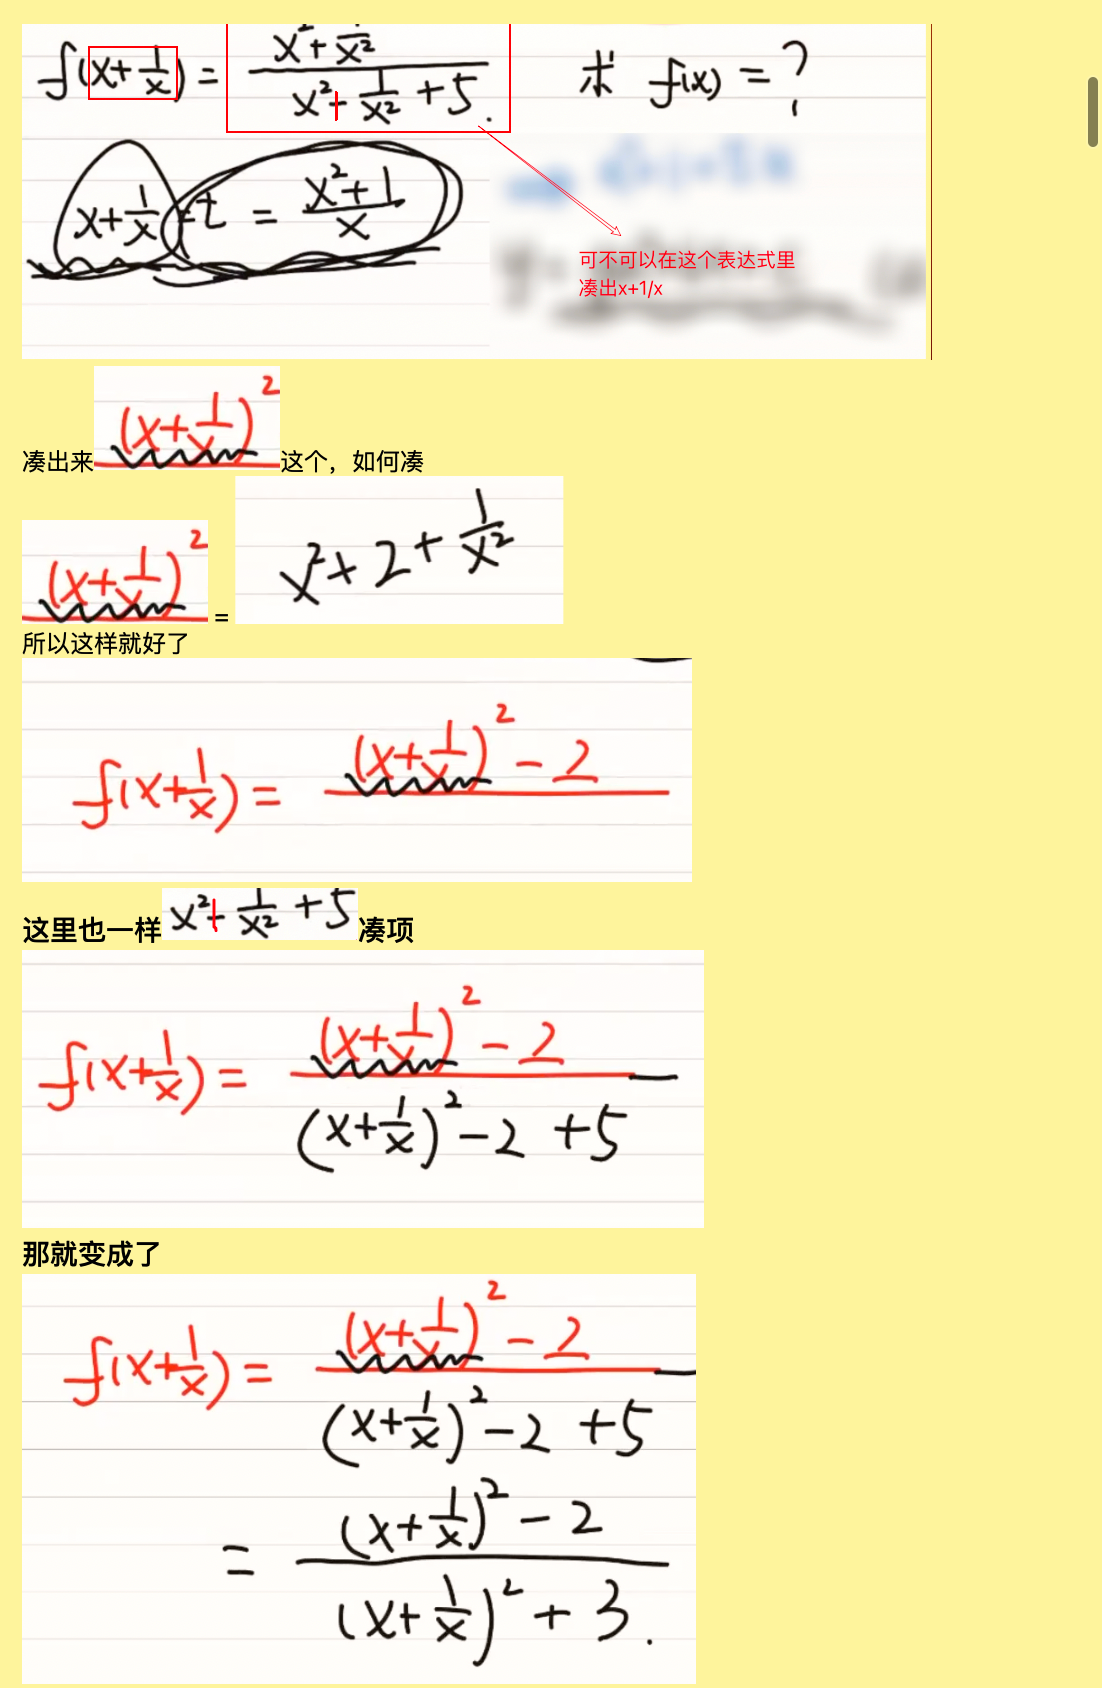 f(x+1/x) = (x²+1/x²)/(x²+1/x²+5). 求 f(x) = ?
x+1/x = t = (x²+1)/x
可不可以在这个表达式里
凑出x+1/x
凑出来(x+1/x)²这个，如何凑
(x+1/x)² = x²+2+1/x²
所以这样就好了
f(x+1/x) = (x+1/x)²-2
这里也一样x²+1/x²+5凑项
f(x+1/x) = ((x+1/x)²-2)/((x+1/x)²-2+5)
那就变成了
f(x+1/x) = ((x+1/x)²-2)/((x+1/x)²-2+5)
= ((x+1/x)²-2)/((x+1/x)²+3).